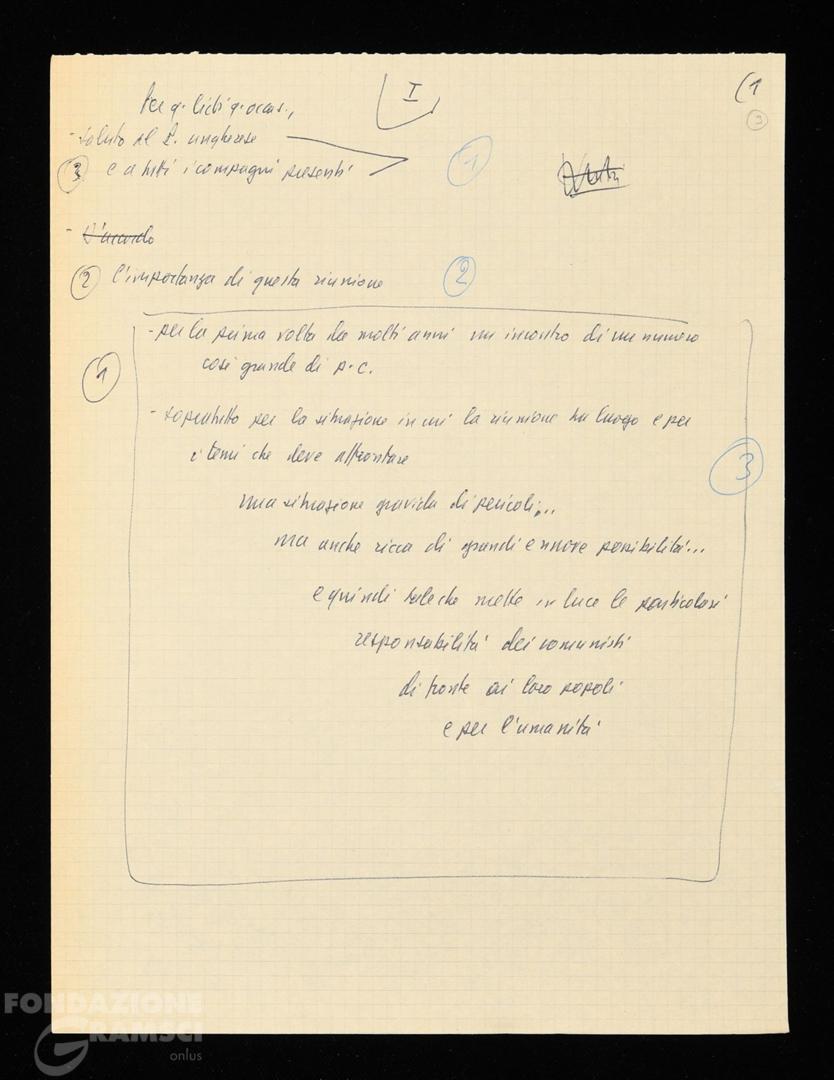 I
(1
3
- saluto al P. ungherese
③ e a tutti i compagni presenti
1
- D'accordo
② l'importanza di questa riunione
2
1
- per la prima volta da molti anni un incontro di un numero
così grande di P.C.
- sopratutto per la situazione in cui la riunione ha luogo e per
i temi che deve affrontare
3
una situazione gravida di pericoli...
ma anche ricca di grandi e nuove possibilità...
e quindi tale che mette in luce le particolari
responsabilità dei comunisti
di fronte ai loro popoli
e per l'umanità
FONDAZIONE
GRAMSCI
onlus